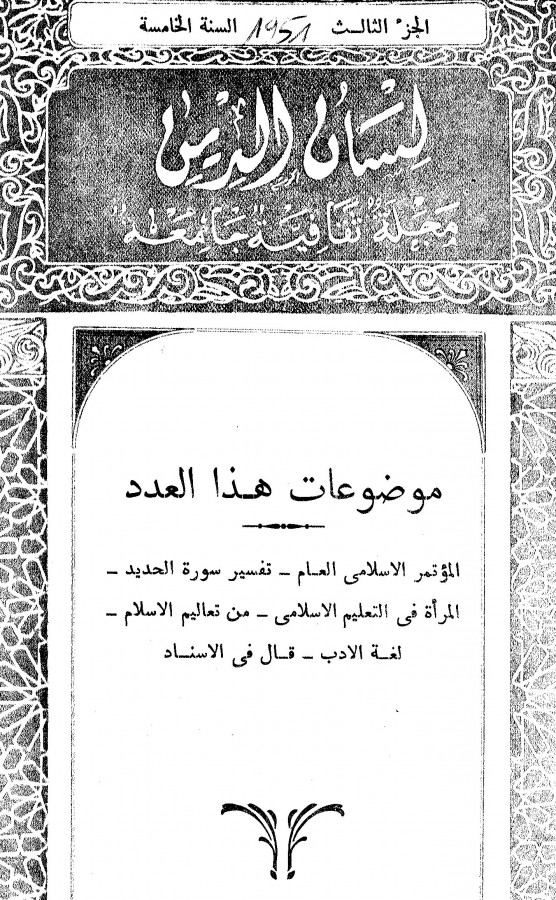 الجزء الثالث 1951 السنة الخامسة
لسان الدين
مجلة ثقافية جامعة
موضوعات هذا العدد
المؤتمر الاسلامى العام – تفسير سورة الحديد –
المرأة فى التعليم الاسلامى – من تعاليم الاسلام –
لغة الادب – قال فى الاسناد